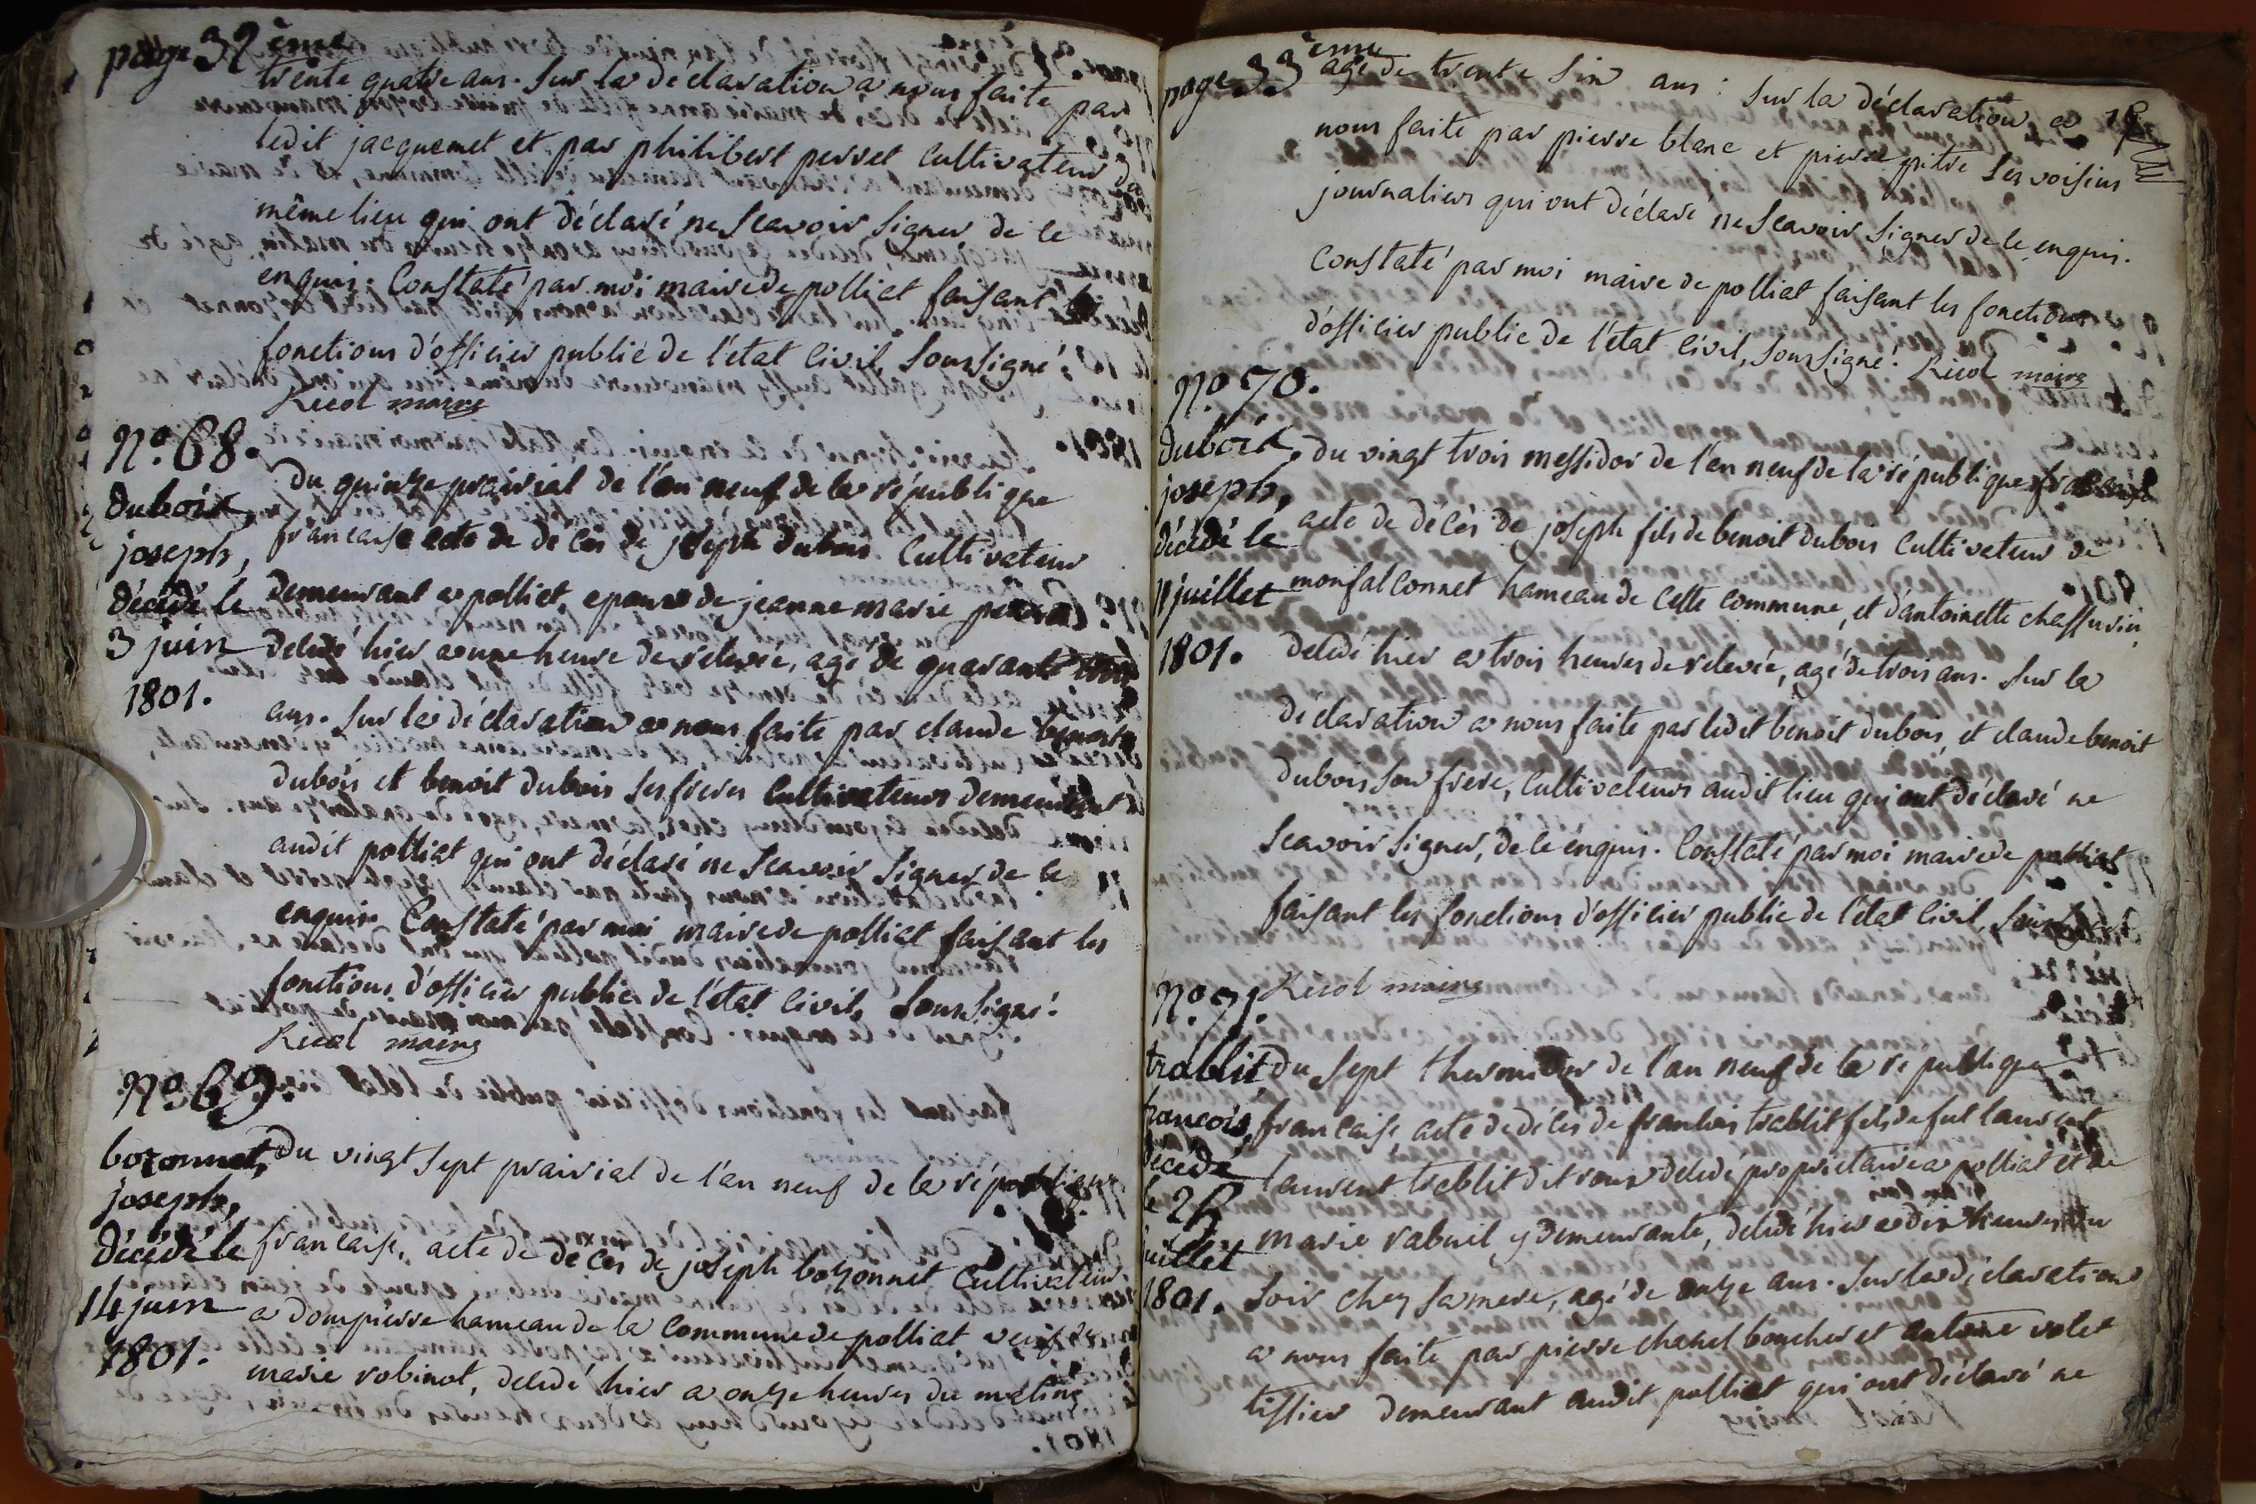 page 32 ème
trente quatre ans. Sur la declaration a nous faite par
ledit jacquemet et par philibert perret cultivateur du
même lieu qui ont déclaré ne scavoir signer de ce
enquis. Constaté par moi maire de polliat faisant les
fonctions d'officier public de l'état civil, soussigné.
Ricol maire
N.º 68.
dubois,
joseph,
décédé le
3 juin
1801.
Du quinze prairial de l'an neuf de la république
francaise acte de décès de joseph dubois cultivateur
demeurant a polliat, epoux de jeanne marie
décédé hier a une heure de relevée, agé de quarante trois
ans. Sur la déclaration a nous faite par claude benoit
dubois et benoit dubois ses freres cultivateurs demeurant
audit polliat qui ont déclaré ne scavoir signer de ce
enquis. Constaté par moi maire de polliat faisant les
fonctions d'officier public de l'état civil, soussigné.
Ricol maire
N.º 69.
bozonnet,
joseph,
décédé le
14 juin
1801.
Du vingt sept prairial de l'an neuf de la république
francaise, acte de décès de joseph bozonnet cultivateur
a dompierre hameau de la commune de polliat veuf de
marie robinot, décédé hier a onze heures du matin
page 33 ème
18
agé de trente six ans : sur la déclaration a
nous faite par pierre blanc et pierre pitre ses voisins
journaliers qui ont déclaré ne scavoir signer de ce enquis.
Constaté par moi maire de polliat faisant les fonctions
d'officier public de l'état civil, soussigné. Ricol maire
N.º 70.
dubois,
joseph,
décédé le
11 juillet
1801.
Du vingt trois messidor de l'an neuf de la république francaise
acte de décès de joseph fils de benoit dubois cultivateur de
monfalconnet hameau de cette commune, et d'antoinette chaffurin
décédé hier a trois heures de relevée, agé de trois ans. Sur la
déclaration a nous faite par ledit benoit dubois, et claude benoit
dubois son frere, cultivateurs audit lieu qui ont déclaré ne
scavoir signer, de ce enquis. Constaté par moi maire de polliat
faisant les fonctions d'officier public de l'état civil, soussigné
Ricol maire
N.º 71.
trablit,
francois,
décédé
le 25
juillet
1801.
Du sept thermidor de l'an neuf de la république
francaise acte de décès de francois trablit fils de fut laurent
laurent trablit dit roux décédé proprietaire a polliat et de
marie rabuel y demeurante, décédé hier a dix heures du
soir chez sa mere, agé de onze ans. Sur la déclaration
a nous faite par pierre chanel boucher et antoine volet
tissier demeurant audit polliat qui ont déclaré ne